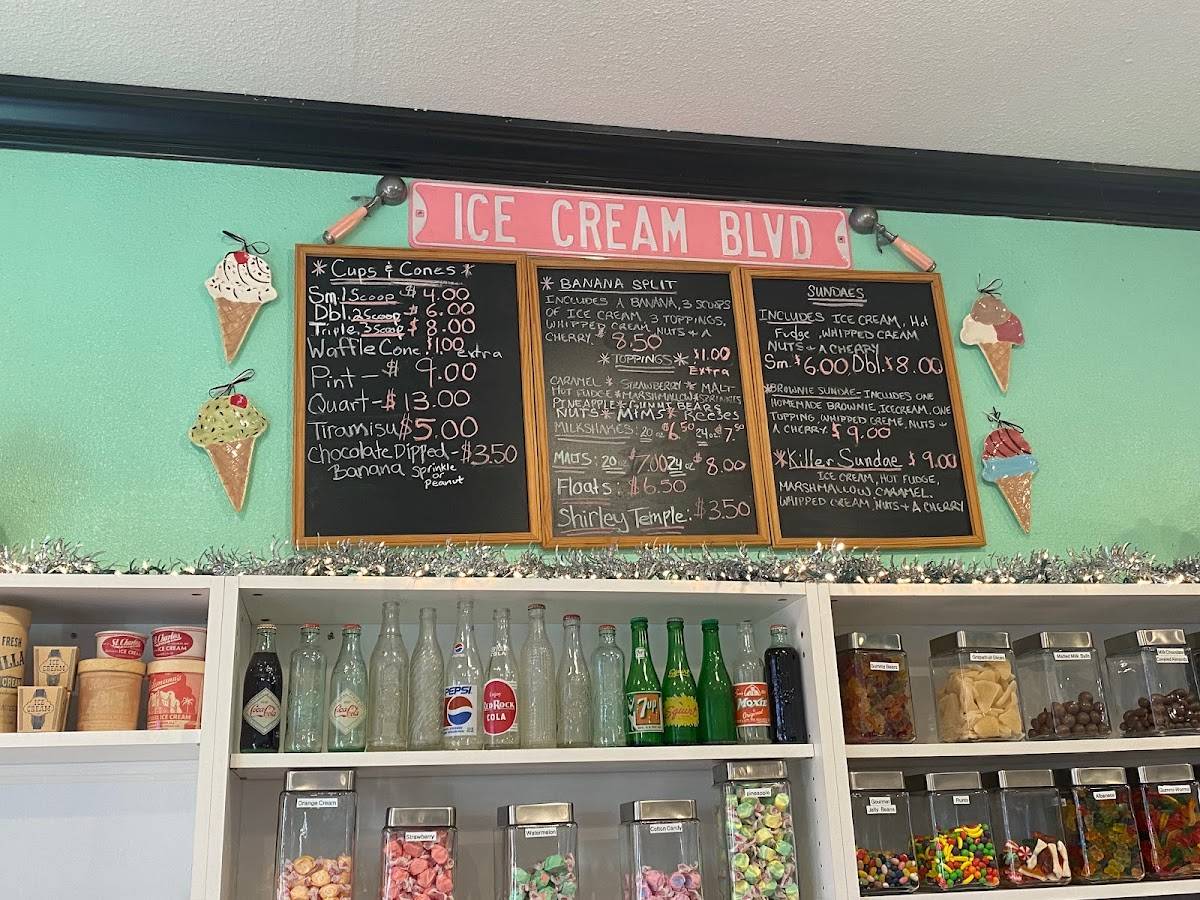 ICE CREAM BLVD
* Cups & Cones *
Sm. 1 Scoop $ 4.00
Dbl. 2 Scoop $ 6.00
Triple, 3 Scoop $ 8.00
Waffle Cone. $1.00 extra
Pint - $ 9.00
Quart - $13.00
Tiramisu $5.00
Chocolate Dipped - $3.50
Banana Sprinkle
or
Peanut
* BANANA SPLIT
INCLUDES A BANANA, 3 SCOOPS
OF ICE CREAM, 3 TOPPINGS,
WHIPPED CREAM, NUTS & A
CHERRY $ 8.50
* TOPPINGS * $1.00
Extra
CARAMEL * STRAWBERRY * MALT
HOT FUDGE * MARSHMALLOW * SPRINKLES
PINEAPPLE * GUMMI BEARS
NUTS * M&MS * REESES
MILKSHAKES: 20 oz $6.50 24 oz $7.50
MALTS: 20 oz $7.00 24 oz $8.00
Floats: $6.50
Shirley Temple: $3.50
SUNDAES
INCLUDES ICE CREAM, Hot
Fudge, WHIPPED CREAM
NUTS & A CHERRY
Sm. $6.00, Dbl. $8.00
*BROWNIE SUNDAE - INCLUDES ONE
HOMEMADE BROWNIE, ICECREAM, ONE
TOPPING, WHIPPED CREME, NUTS &
A CHERRY $9.00
*Killer Sundae $ 9.00
ICE CREAM, HOT FUDGE,
MARSHMALLOW CARAMEL.
WHIPPED CREAM, NUTS & A CHERRY
FRESH
ICE
CREAM
ICE
CREAM
St. Charles
ICE CREAM
St. Charles
ICE CREAM
ICE CREAM
Coca-Cola
Coca-Cola
PEPSI
RED ROCK
COLA
7up
Moxie
Gummy Bears
Grapefruit Slices
Malted Milk Balls
Milk Chocolate
Covered Almonds
Orange Cream
Strawberry
Watermelon
Cotton Candy
pineapple
Gourmet
Jelly Beans
Runts
Albanese
Gummi Worms